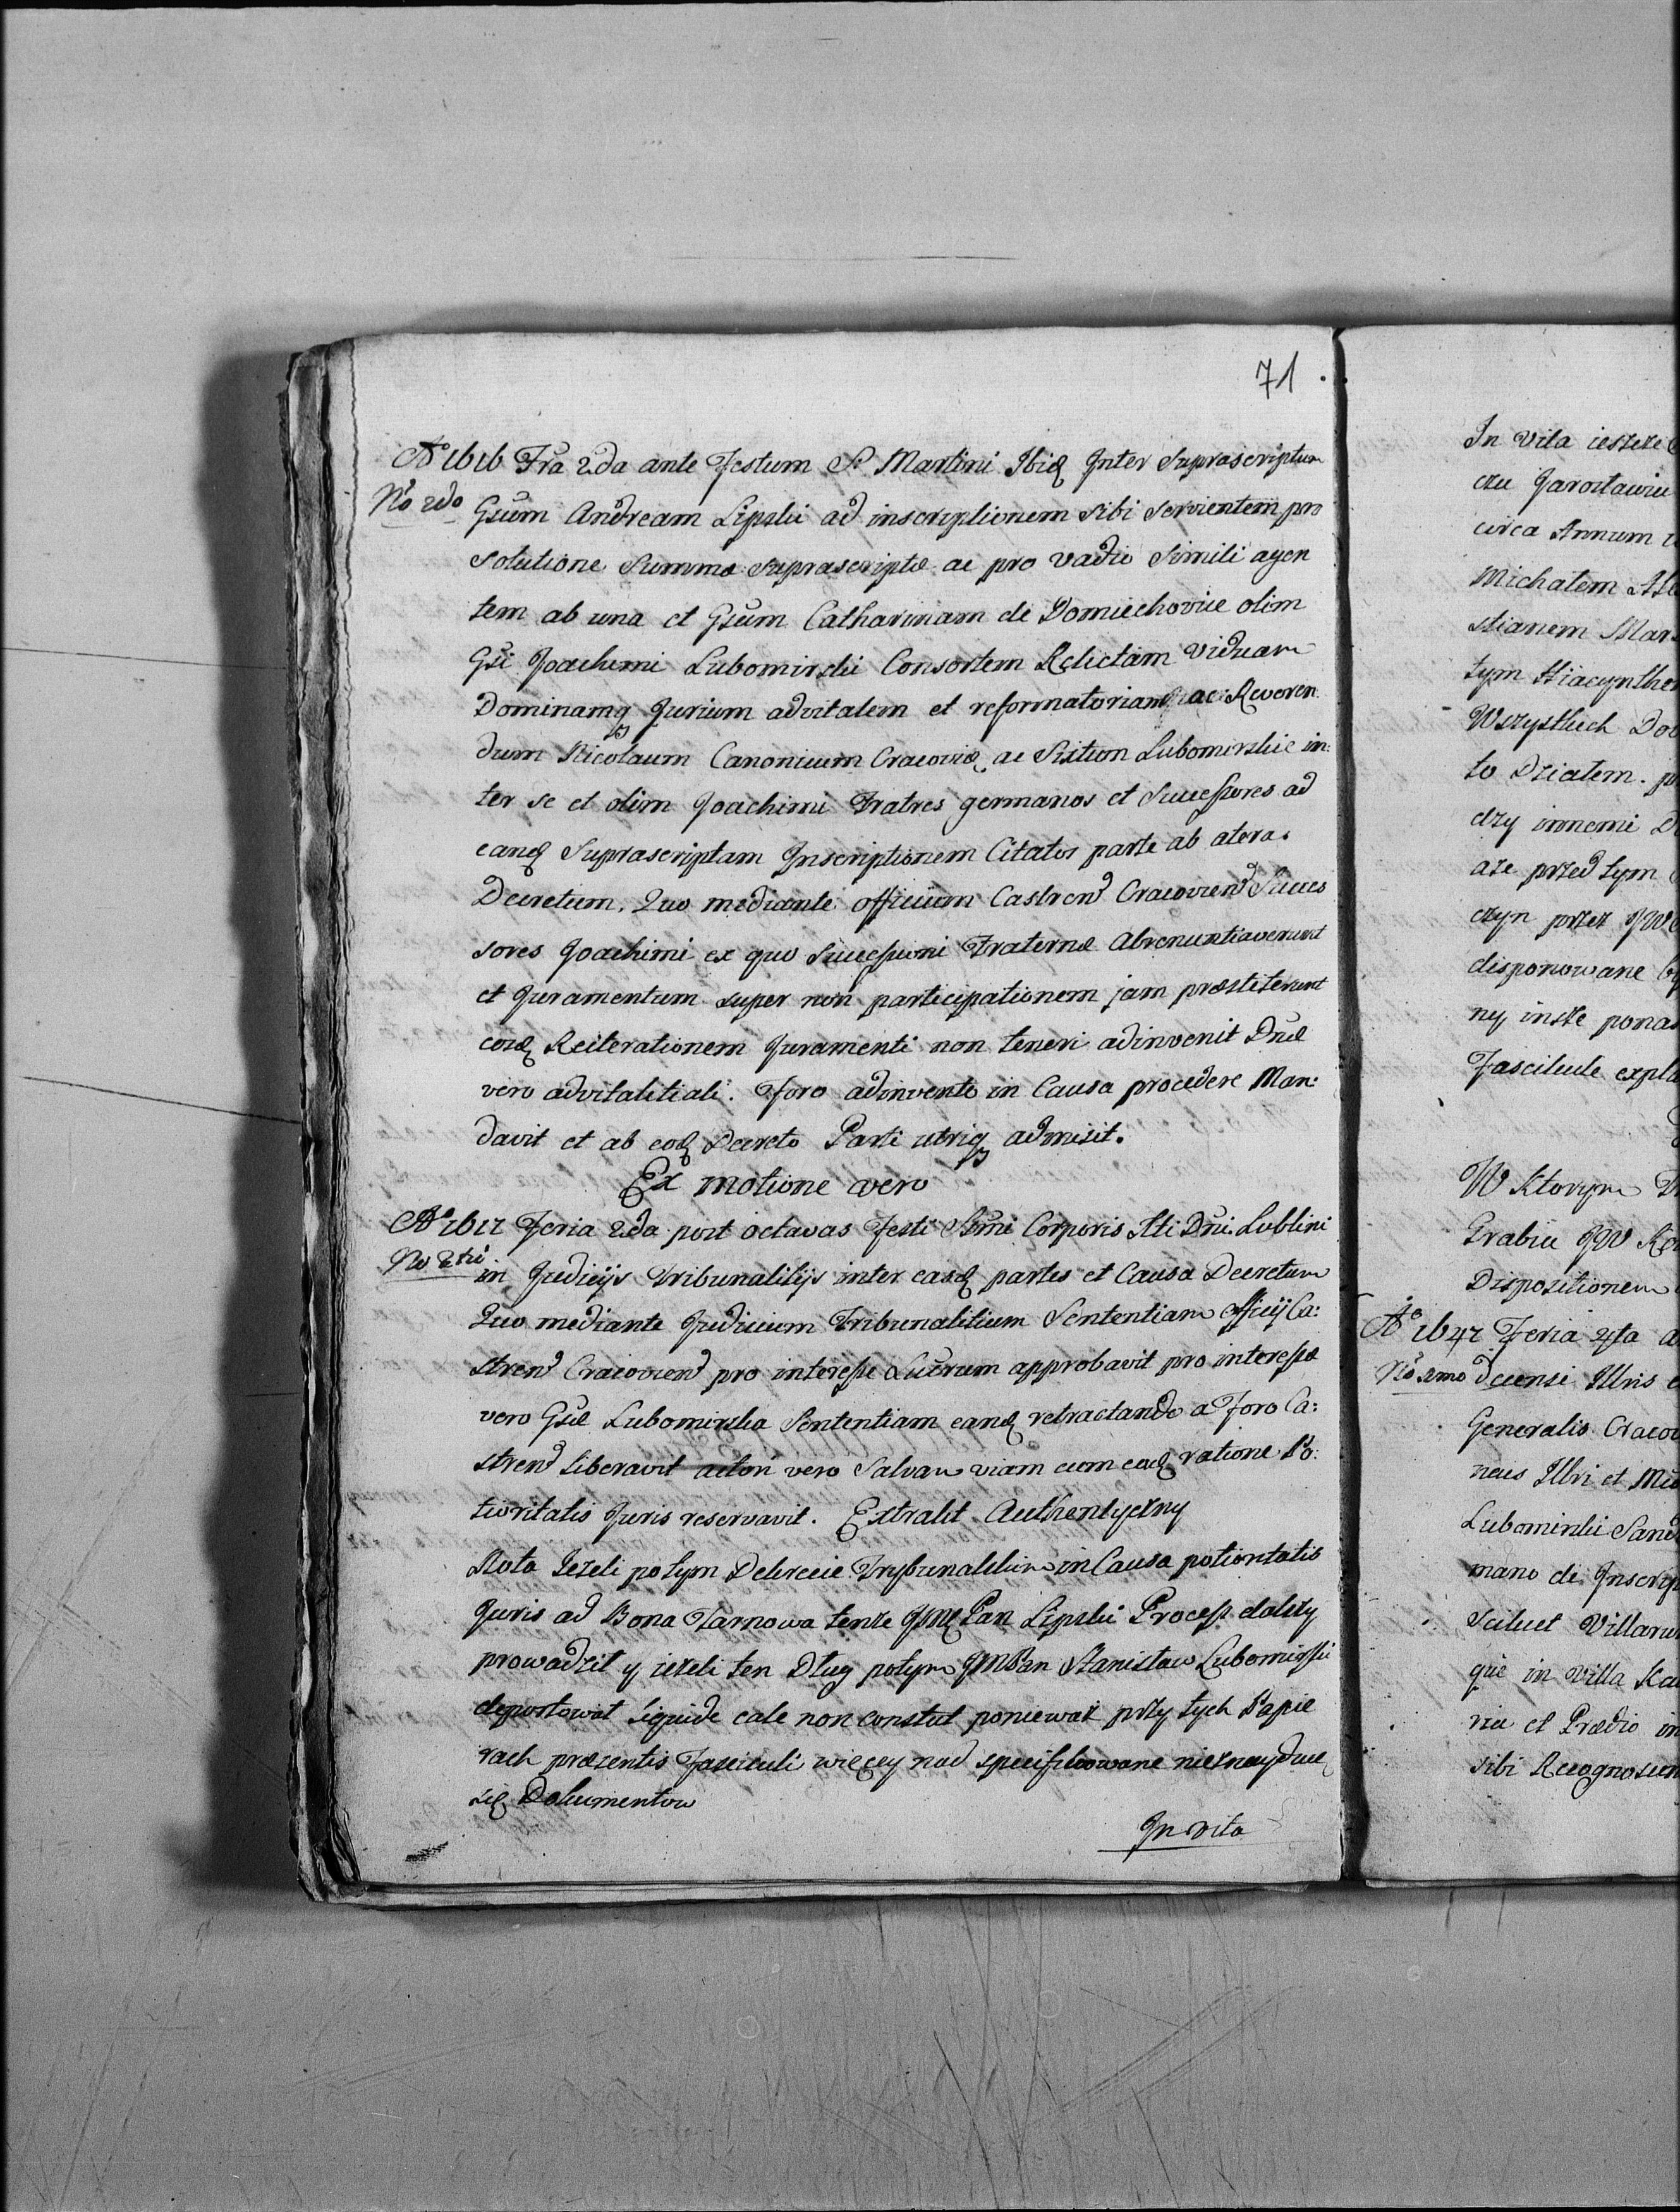 71.
Aº 1616 Fra 2da ante Festum S. Martini Ibiq Inter Suprascriptum
Nº 2do Gsum Andream Lipski ad inscriptionem sibi servientem pro
solutione Summæ suprascriptæ ac pro vadio simili agen
tem ab una et Gsum Catharinam de Domiechovice olim
Gsi Joachimi Lubomirskii Consortem Relictam viduam
Dominamq Jurium advitalem et reformatoriam, ac Reveren
dum Nicolaum Canonicum Cracoviæ, ac Sixtum Lubomirskie in:
ter se et olim Joachimi Fratres germanos et Successores ad
eandq Suprascriptam Inscriptionem Citatos parte ab altera.
Decretum. Quo mediante officium Castren Cracovien Succes
sores Joachimi ex quo Successioni Fraternæ Abrenuntiaverunt
et Juramentum super non participationem jam præstiterunt
eosdq Reiterationem Juramenti non teneri adinvenit Dnæ
vero advitalitiali. Foro adinvento in Causa procedere Man:
davit et ab eodq Decreto Parti utriq admisit.
Ex motione vero
Aº 1617 Feria 2da post octavas Festi Ssmi Corporis Xti Dni. Lublini
No 3tii in Judicijs Tribunalitijs inter easdq partes et Causa Decretum
Quo mediante Judicium Tribunalitium Sententiam officij Ca:
stren Cracovien pro interesse approbavit pro interesse
vero Gsæ Lubomirska Sententiam eandq retractando a Foro Ca:
stren liberavit actori vero Salvam viam cum eadq ratione Po:
tioritatis Juris reservavit. Extrakt Authentyczny
Nota Jezeli po tym Dekrecie Trybunalskim in Causa potioritatis
Juris ad Bona Tarnowa tenze Pan Lipski Process dalszy
prowadzil y jezeli ten Dlug potym JMPan Stanislaw Lubomirski
deportowal liquide cale non constat poniewaz przy tych Papie
rach præsentis Fasciculi więcey nad specifikowane nieznayduie
się Dokumentow
In vita
In vita ieszcze
czu Jaroslawiu
circa Annum
Michalem
stianem Mar
tym Hiacynthe
Wszystkich Do
to Dzialem. p
dzy innemi D
aze przed tym
czyn przez JW
disponowane
ny inste pona
Fascikule expla
W Ktorym
Grabiu JW
Dispositionem
Aº 1647 Feria 4ta a
Nº 1mo dcensi Illris
Generalis Craco
neus Illri et
Lubomirskii San
mano de Inscrip
Scilicet Villaru
que in villa Ka
nia et Prædio in
sibi Recognoscen